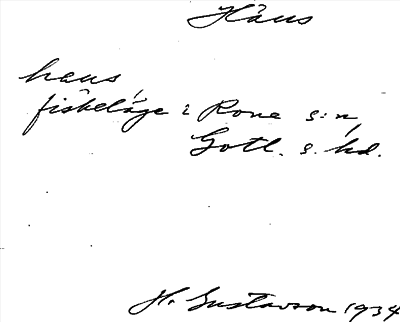 Häus
haus,
fiskeläge i Rone s:n,
Gotl. s. hd.
H. Gustavson 1934